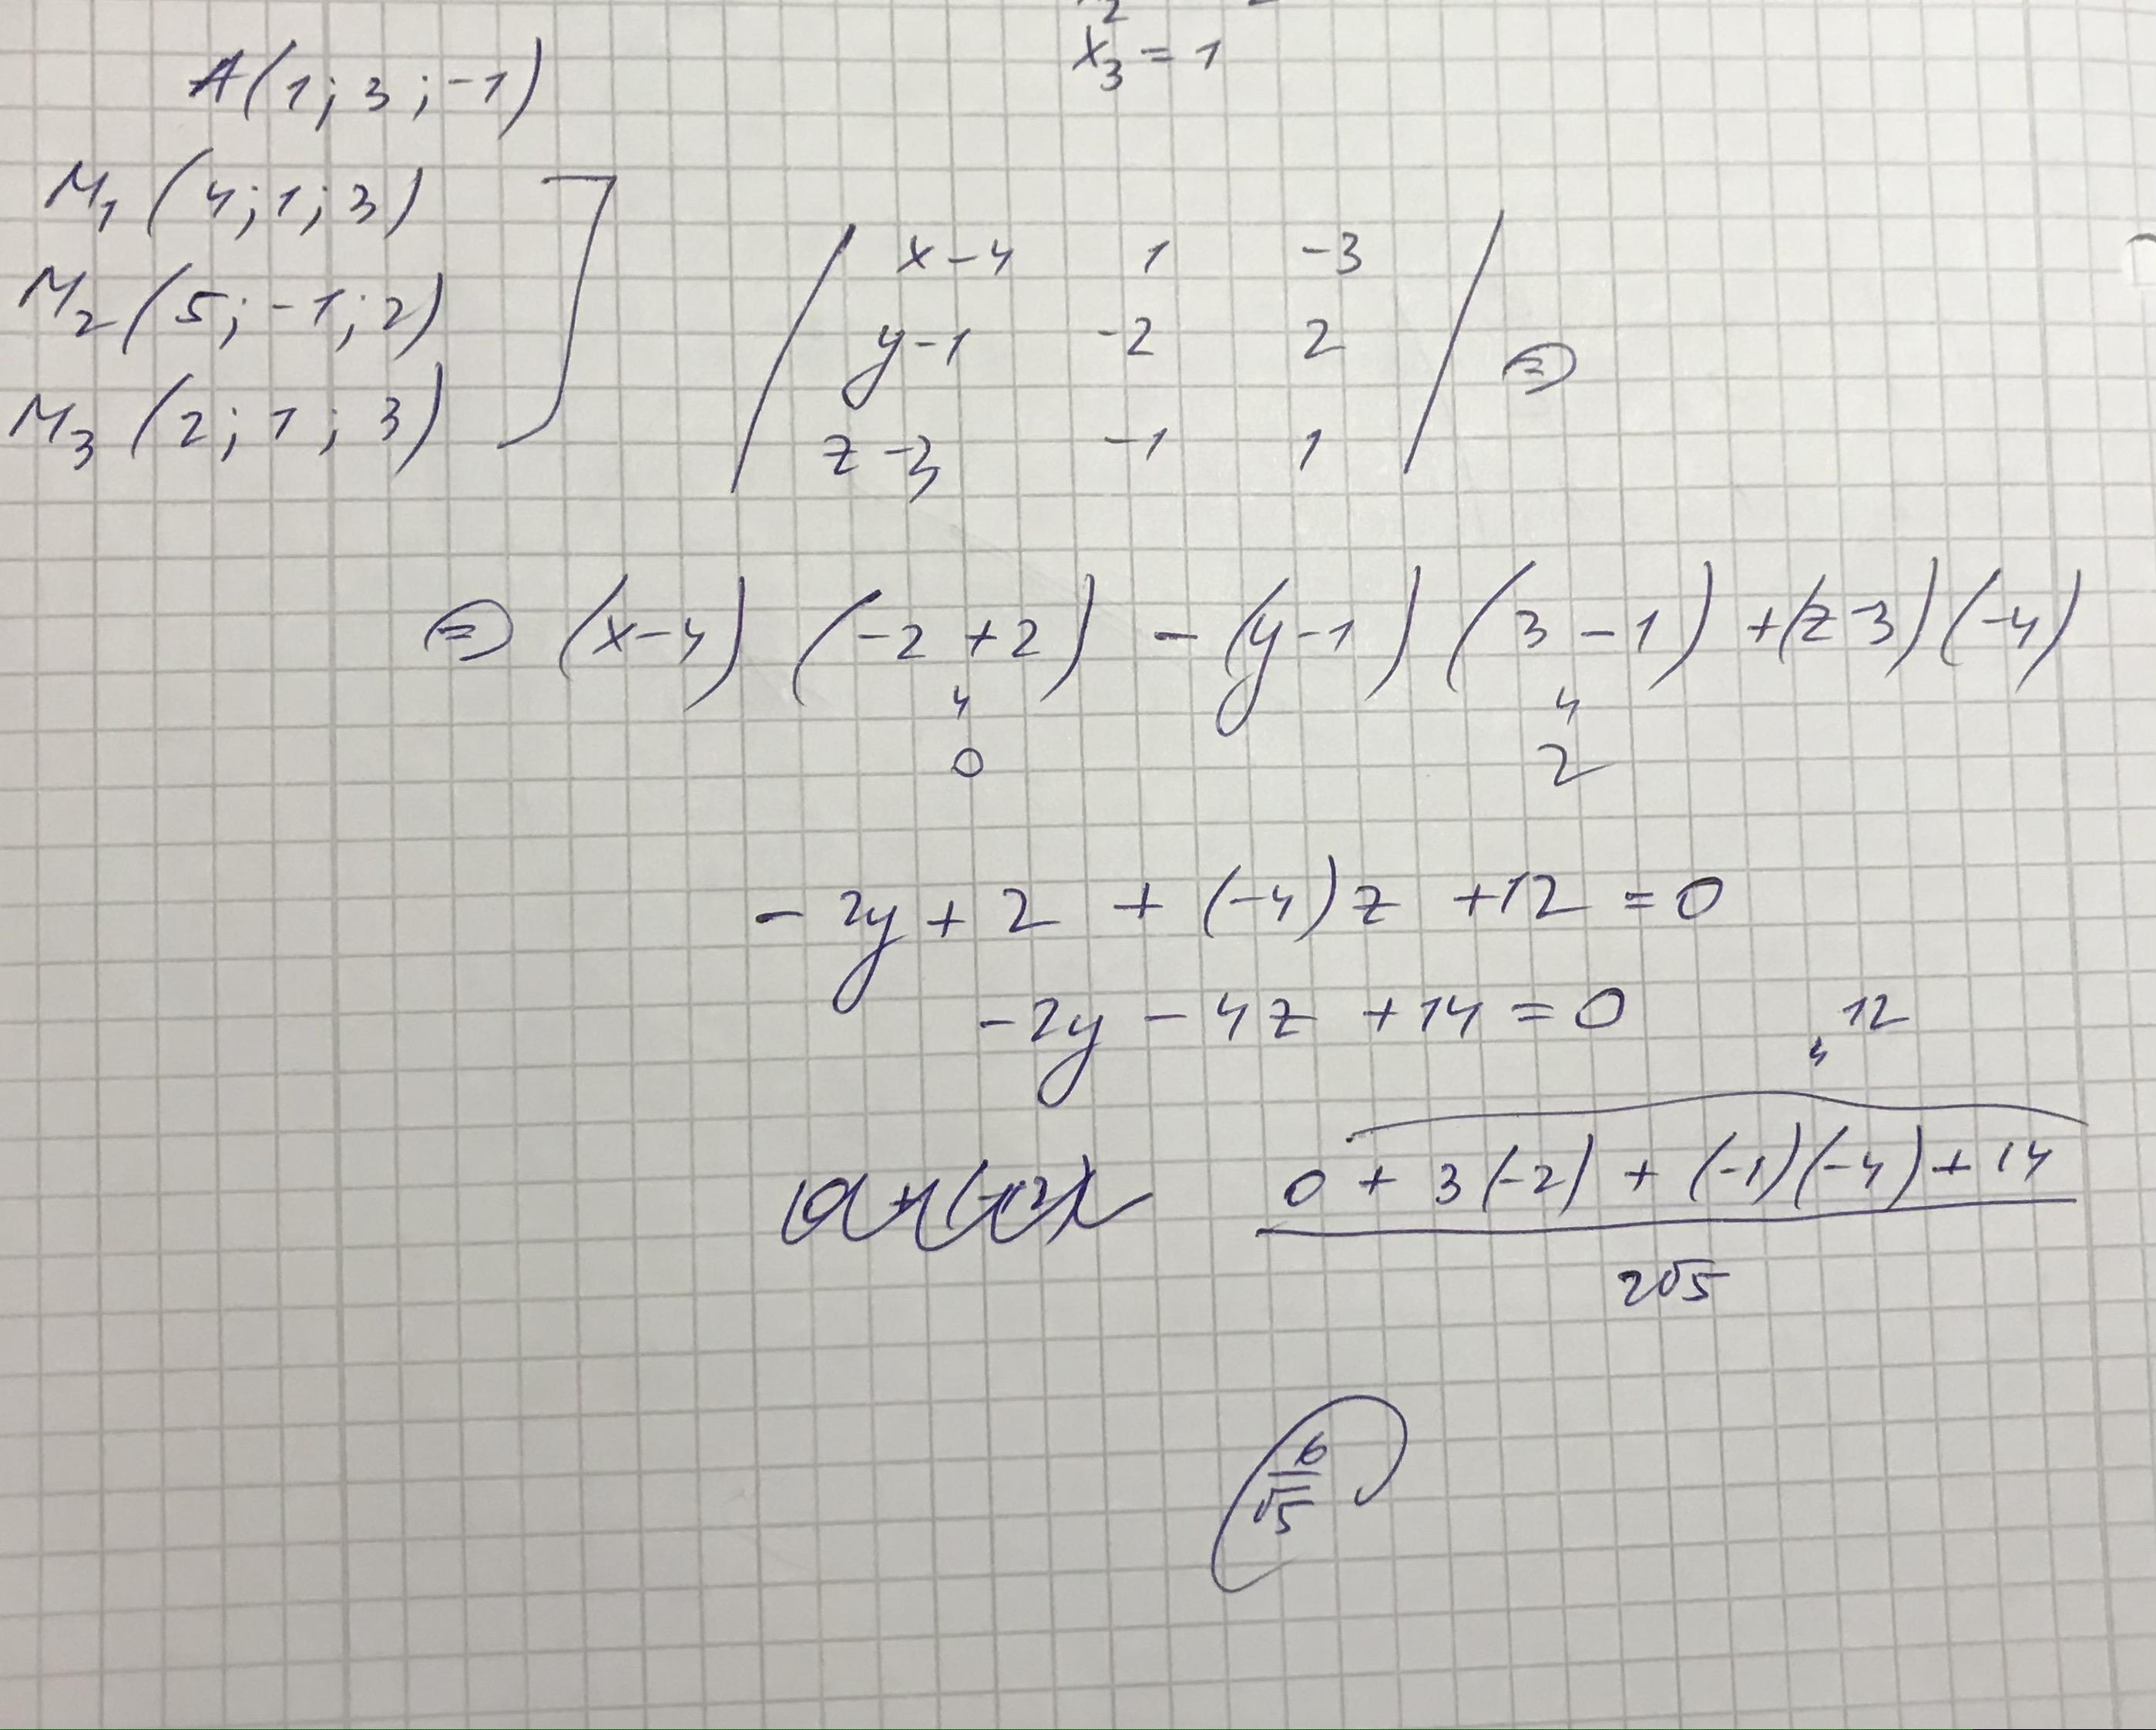 x₃ = 1
A(1; 3; -1)
M₁ (4; 1; 3)
M₂ (5; -1; 2)
M₃ (2; 1; 3)
| x-4 1 -3 |
| y-1 -2 2 | =
| z-3 -1 1 |
= (x-4) (-2+2) - (y-1) (3-1) + (z-3) (-4)
0 2
- 2y + 2 + (-4)z + 12 = 0
-2y - 4z + 14 = 0
12
0 + 3(-2) + (-1)(-4) + 14
2√5
6
√5